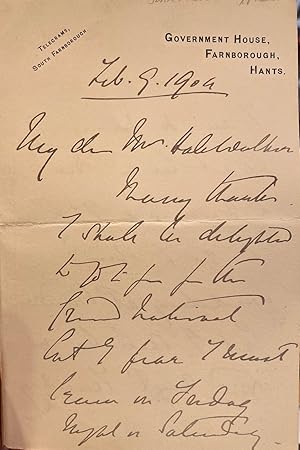 TELEGRAMS,
SOUTH FARNBOROUGH
GOVERNMENT HOUSE,
FARNBOROUGH,
HANTS.
Feb. 9. 1904
My dear Mr Hall Walker
Many thanks.
I shall be delighted
to for the
Grand National
but I fear I must
leave on Friday
night or Saturday